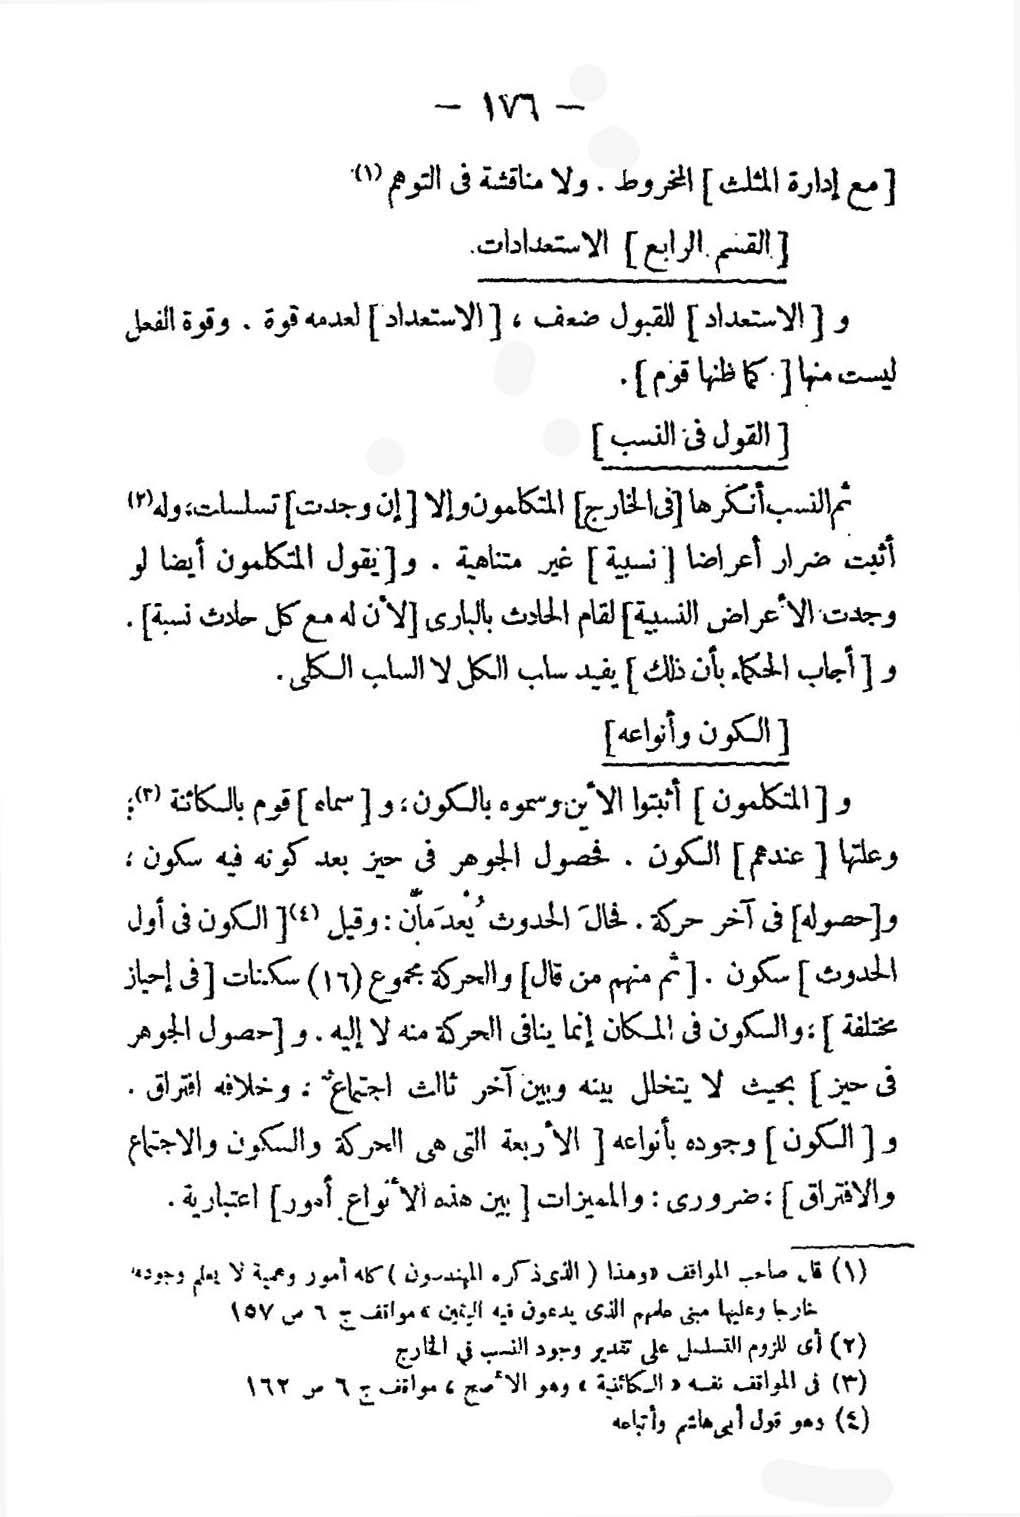 — ١٧٦ —
[ مع إدارة المثلث ] المخروط . ولا مناقشة فى التوهم (١).
[ القسم الرابع ] الاستعدادات.
و [ الاستعداد ] للقبول ضعف ، [ الاستعداد ] لعدمه قوة . وقوة الفعل
ليست منها [ كما ظنها قوم ] .
[ القول فى النسب ]
ثم النسب أنكرها [فى الخارج] المتكلمون وإلا [ إن وجدت ] تسلسلت ، وله (٢)
أثبت ضرار أعراضا [ نسبية ] غير متناهية . و [ يقول المتكلمون أيضا لو
وجدت الأعراض النسبية ] لقام الحادث بالبارى [ لأن له مع كل حادث نسبة ] .
و [ أجاب الحكماء بأن ذلك ] يفيد سلب الكل لا السلب الكلى .
[ الكون وأنواعه ]
و [ المتكلمون ] أثبتوا الأين وسموه بالكون ، و [ سماه ] قوم بالكائنة (٣) ؛
وعلتها [ عندهم ] الكون . فحصول الجوهر فى حيز بعد كونه فيه سكون ،
و [حصوله] فى آخر حركة . فحالَ الحدوث لم يُعدَ مآن : وقيل (٤) [ الكون فى أول
الحدوث ] سكون . [ ثم منهم من قال ] والحركة مجموع (١٦) سكنات [ فى إحياز
مختلفة ] ؛ والسكون فى المكان إنما ينافى الحركة منه لا إليه . و [ حصول الجوهر
فى حيز ] بحيث لا يتخلل بينه وبين آخر ثالث اجتماع ؛ وخلافه افتراق .
و [ الكون ] وجوده بأنواعه [ الأربعة التى هى الحركة والسكون والاجتماع
والافتراق ] ؛ ضرورى ؛ والمميزات [ بين هذه الأنواع أمور ] اعتبارية .
(١) قال صاحب المواقف «وهذا ( الذى ذكره المهندسون ) كله أمور وهمية لا يعلم وجوده
خارجا وعليها مبنى علمهم الذى يدعون فيه اليقين » مواقف ج ٦ ص ١٥٧
(٢) أى للزوم التسلسل على تقدير وجود النسب في الخارج
(٣) فى المواقف نفسه « الكائنية » وهو الأصح ، مواقف ج ٦ ص ١٦٢
(٤) وهو قول أبى هاشم وأتباعه